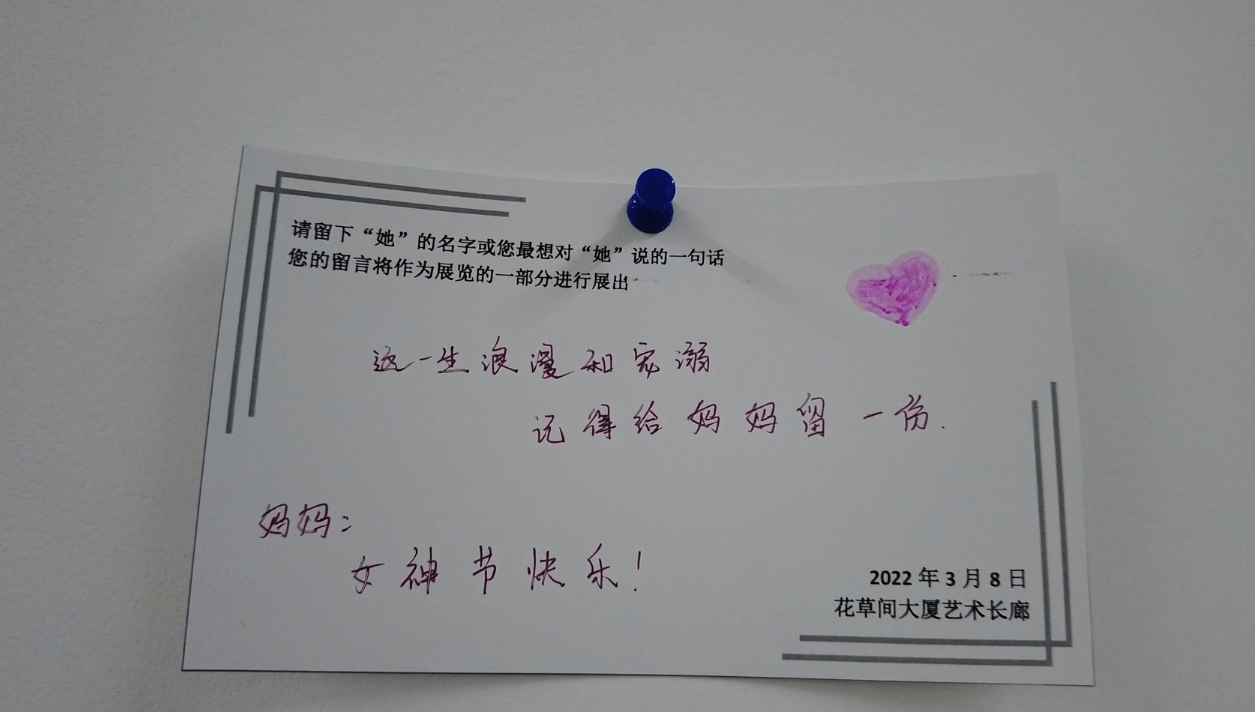 请留下“她”的名字或您最想对“她”说的一句话
您的留言将作为展览的一部分进行展出
这一生浪漫和宠溺
记得给妈妈留一份.
妈妈:
女神节快乐!
2022 年 3 月 8 日
花草间大厦艺术长廊